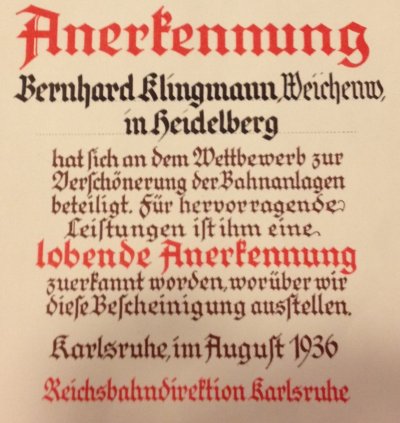 Anerkennung
Bernhard Klingmann, Weichenw,
in Heidelberg
hat sich an dem Wettbewerb zur
Verschönerung der Bahnanlagen
beteiligt. Für hervorragende
Leistungen ist ihm eine
lobende Anerkennung
zuerkannt worden, worüber wir
diese Bescheinigung ausstellen.
Karlsruhe, im August 1936
Reichsbahndirektion Karlsruhe